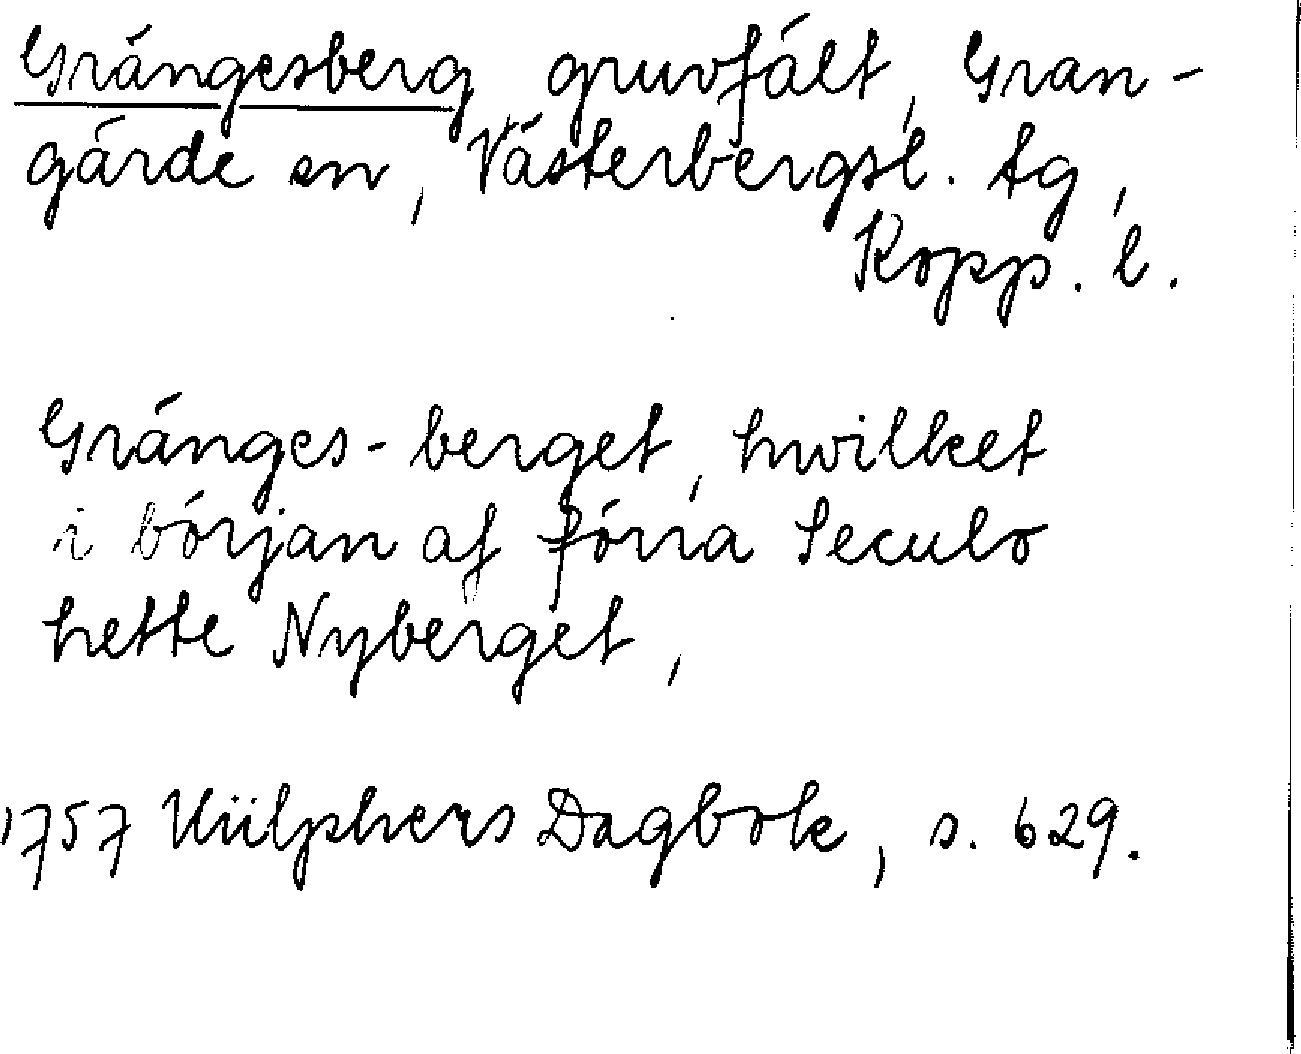 Grängesberg gruvfält, Gran-
gärde sn, Västerbergsl. tg,
Kopp. l.
Gränges-berget, hwilket
i början af förra Seculo
hette Nyberget,
1757 Hülphers Dagbok, s. 629.